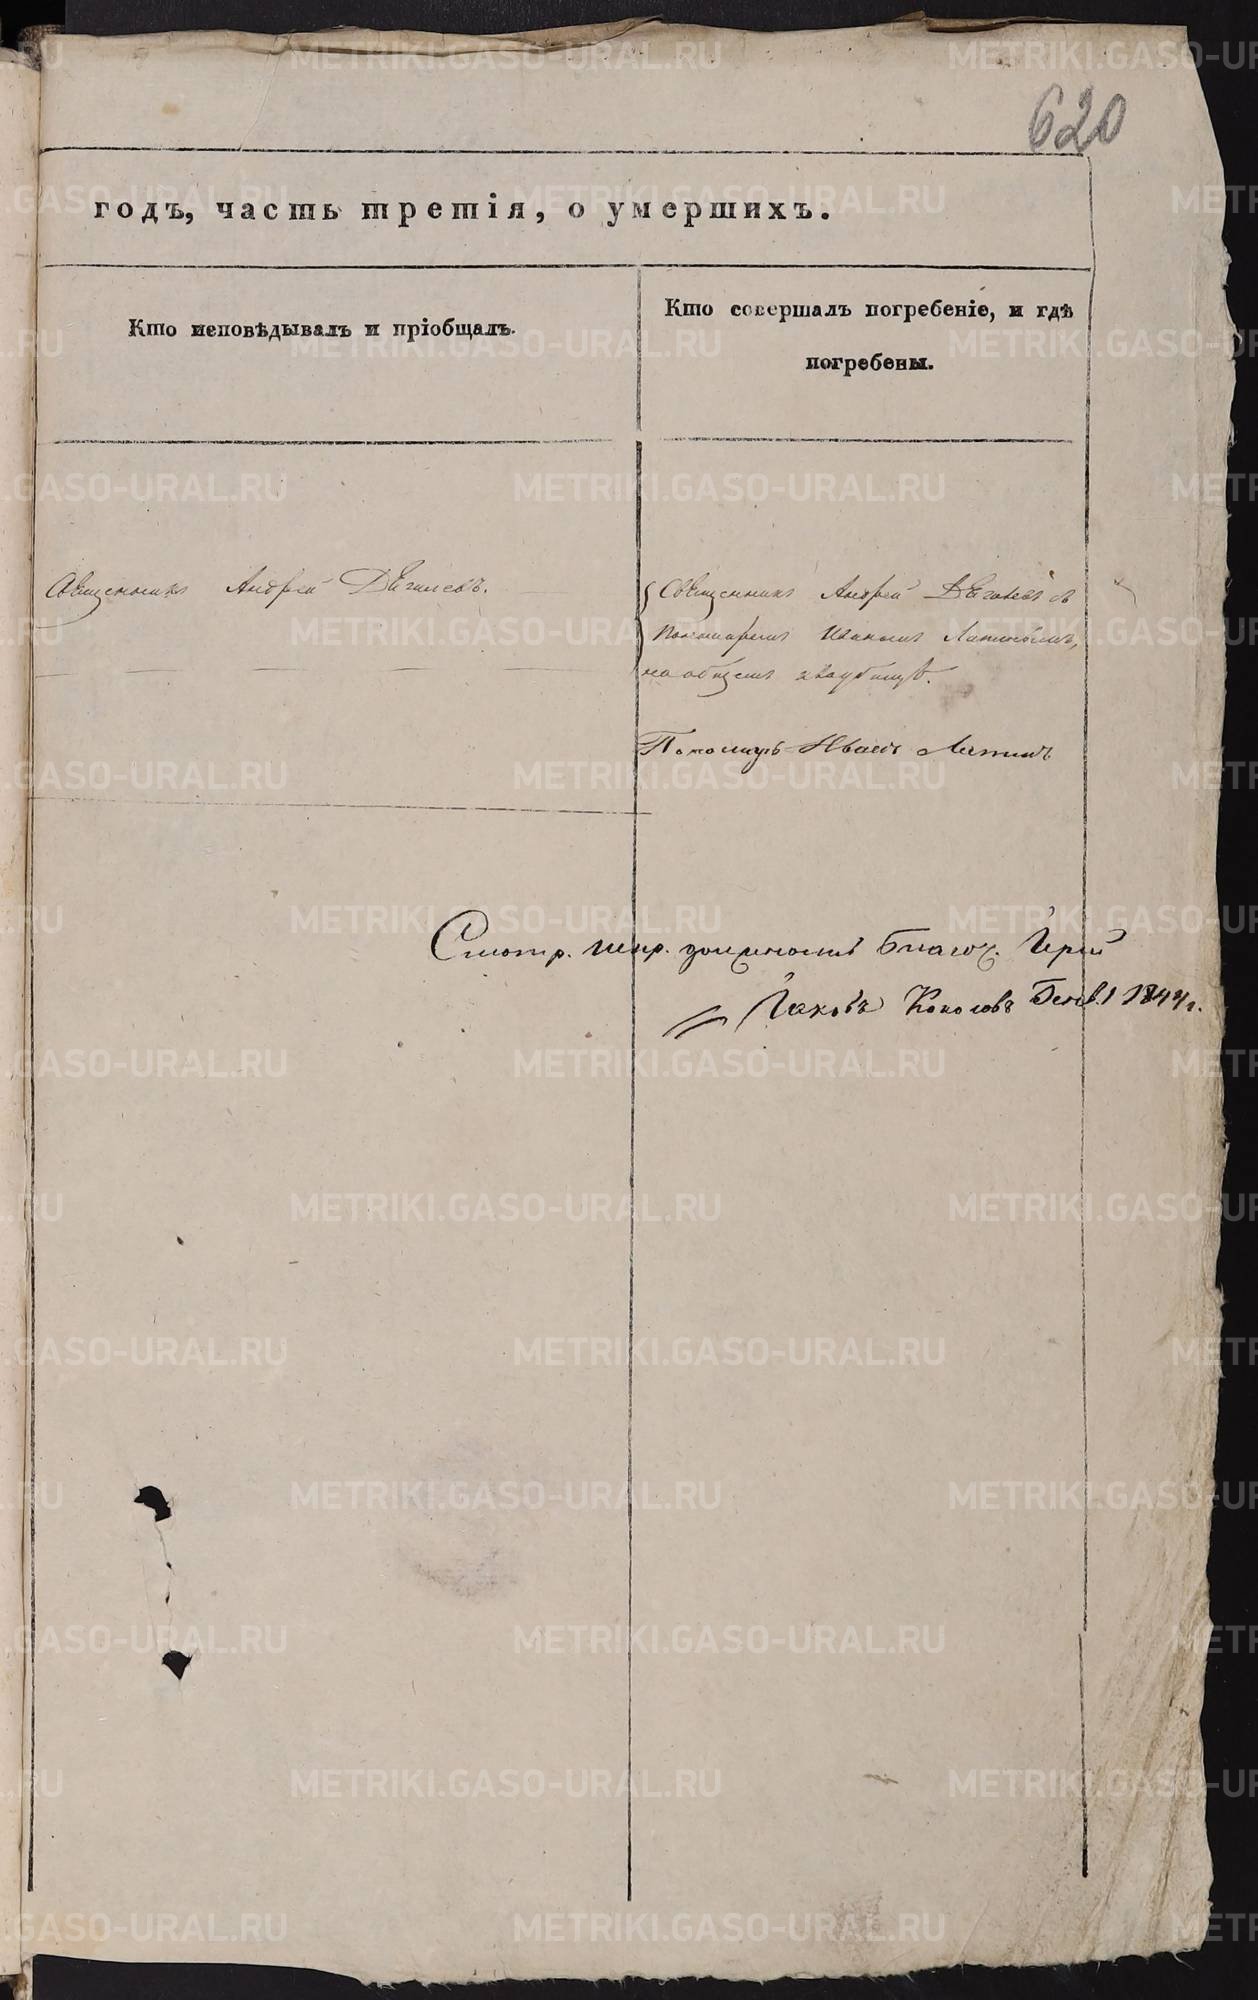 620
годъ, часть третія, о умершихъ.
Кто исповѣдывалъ и пріобщалъ.
Кто совершалъ погребеніе, и гдѣ
погребены.
Священникъ Андрей Дягилевъ.
Священникъ Андрей Дягилевъ съ
Пономаремъ Иваномъ Лапинымъ,
на общемъ кладбищѣ.
Пономарь Иванъ Лапинъ
Смотр. Благоч. Іерей
Іаковъ Генв. 1 1844 г.
METRIKI.GASO-URAL.RU